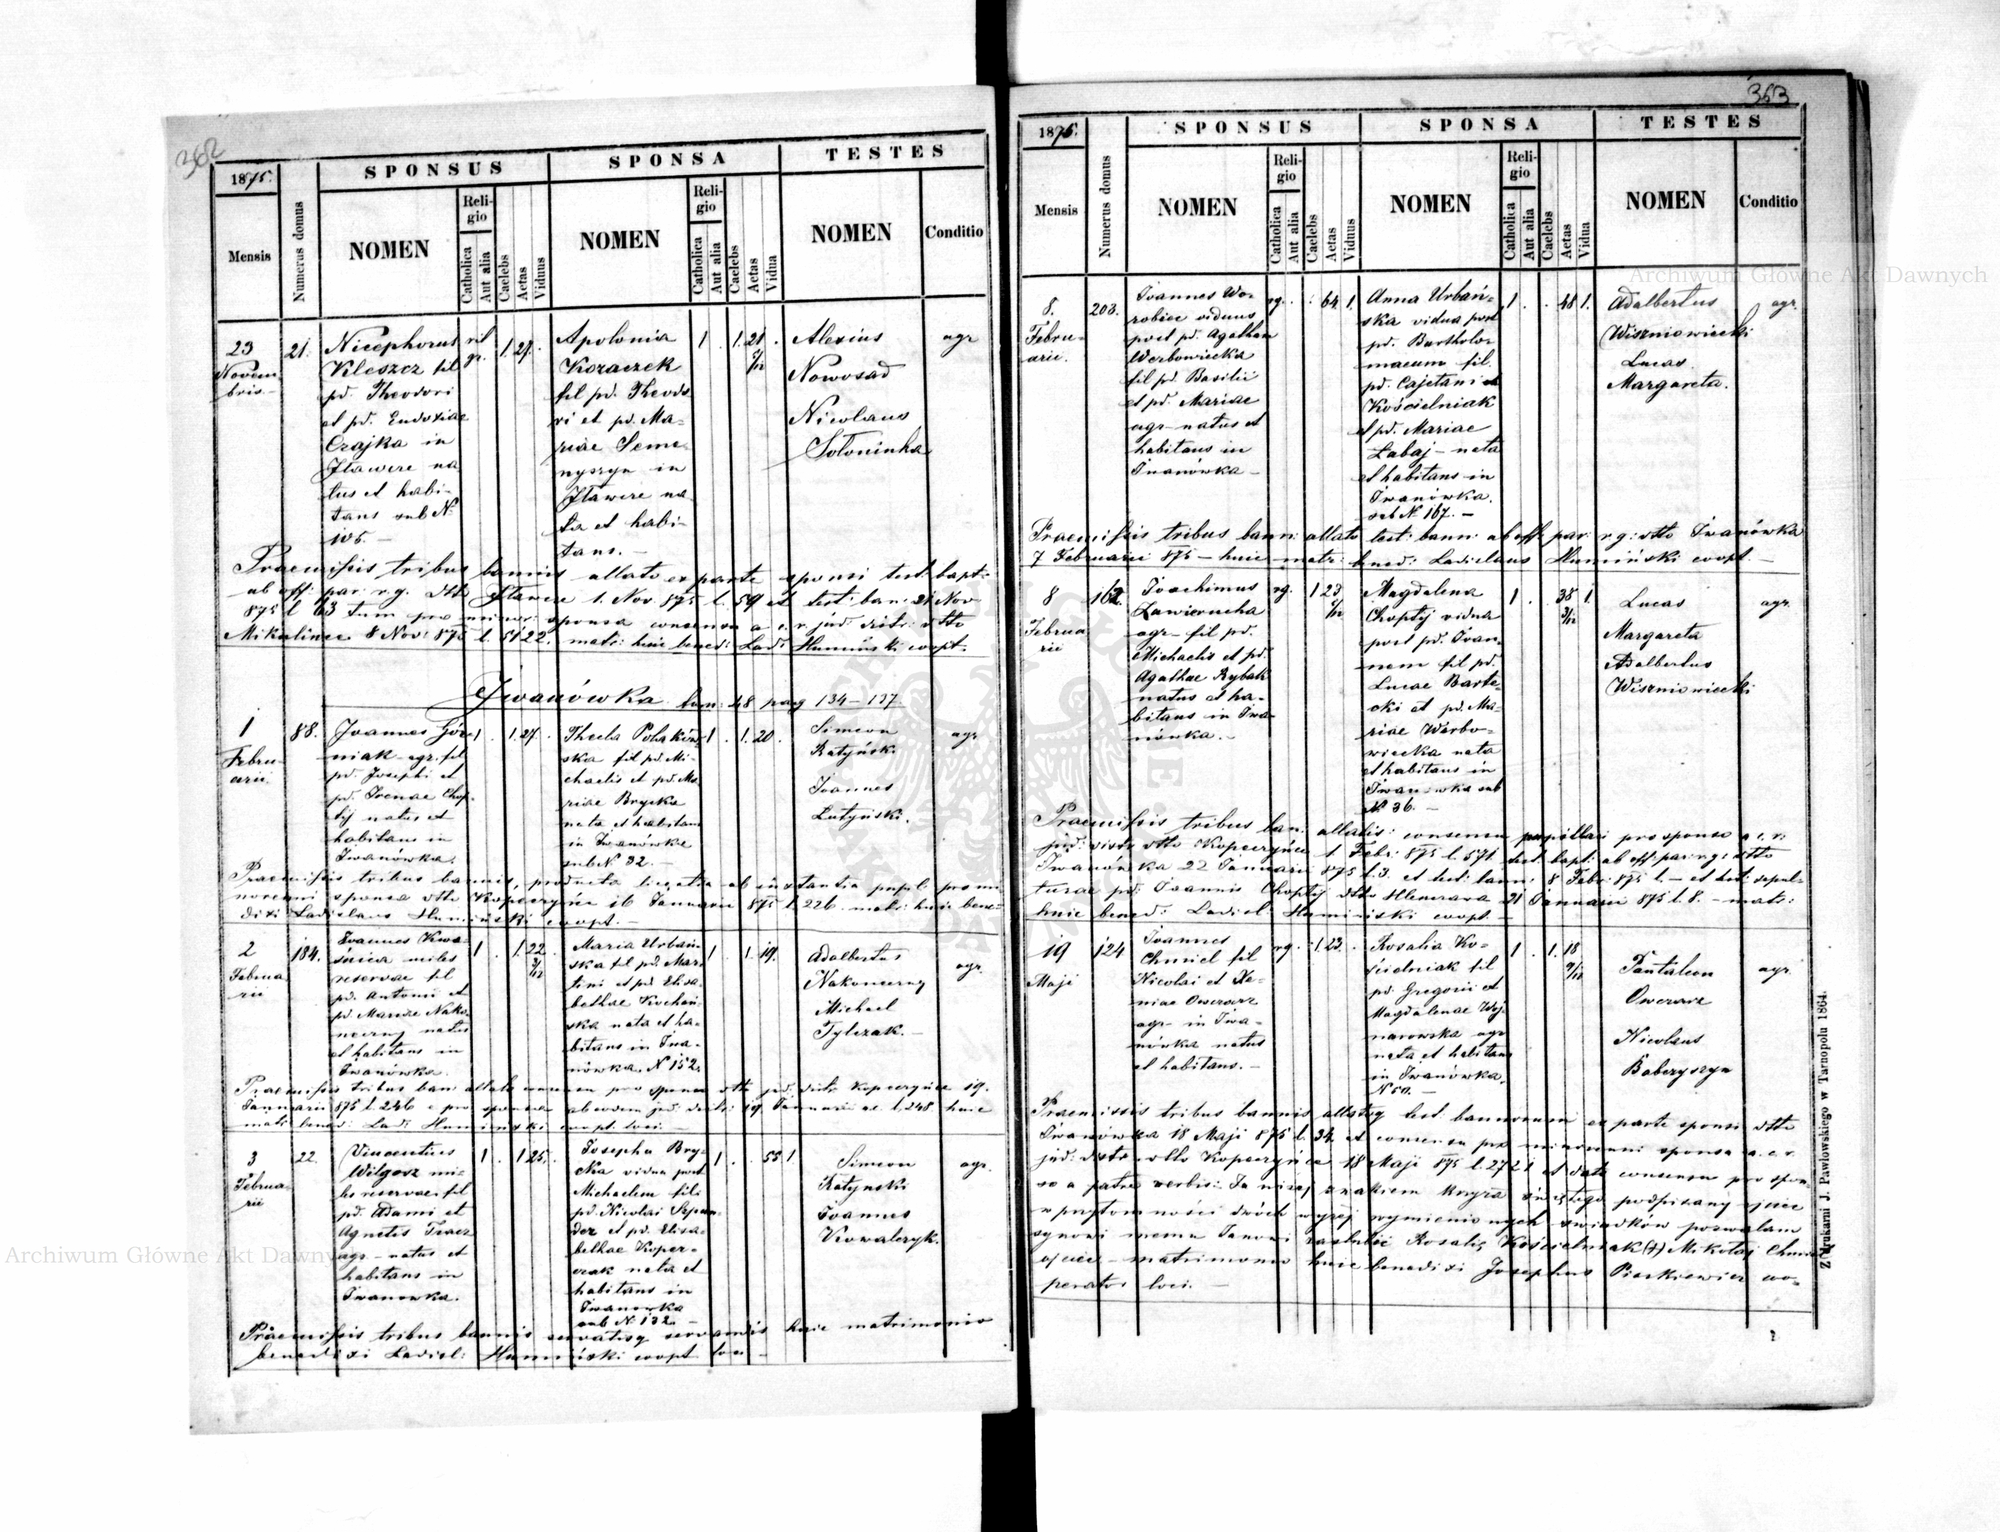 362
1875.
SPONSUS
SPONSA
TESTES
Mensis
Numerus domus
NOMEN
Religio
Catholica
Aut alia
Caelebs
Aetas
Viduus
NOMEN
Religio
Catholica
Aut alia
Caelebs
Aetas
Vidua
NOMEN
Conditio
23
Novem
bris
21.
Nicephorus
Kleszcz fil
pd. Theodori
et pd. Eudoxiae
Czajka in
Iławcze na
tus et habi-
tans sub N.
105. —
rit
gr.
1.
27.
Apolonia
Kozaczek
fil pd. Theodo
ri et pd. Ma-
riae Seme-
nyszyn in
Iławcze na
ta et habi-
tans. —
1
1.
21
Alexius
Nowosad
Nicolaus
Sołoninka
agr
Praemissis tribus bannis allato ex parte sponsi test: bapt:
ab off: par: r.g. dtto Iławcze 1. Nov. 875 l. 59 et test: ban: 21 Nov-
875 l. 63 tum pro minor: sponsa consensu a c. r. jud. distr: dtto
Mikulince 8 Nov: 875 l. 5122. matr: huic bened: Ladi Humiński coopt.
Iwanówka tom: 48 pag 134-137.
1
Febru-
arii
88.
Joannes Gór-
niak agr. fil
pd. Josephi et
pd. Irenae Chop-
tij natus et
habitans in
Iwanówka.
1
1.
27.
Thecla Polaków-
ska fil pd. Mi-
chaelis et pd. Ma
riae Brycka
nata et habitans
in Iwanówka
sub N. 32. —
1
1.
20.
Simeon
Ratyński
Joannes
Lutyński.
agr.
Praemissis tribus bannis, producta licentia ab instantia pupil. pro mi
norenni sponsa dtto Kopeczyńce 16 Januarii 875 l. 226. matr: huic bene-
dixi Ladislaus Humiński coopt. —
2
Februa
rii
184.
Joannes Kwa-
śnica miles
reservae fil
pd. Antonii et
pd. Mariae Nako-
neczny natus
et habitans in
Iwanówka.
1
1.
22
Maria Urbań-
ska fil pd. Mar-
tini et pd. Elisa-
bethae Kochań-
ska nata et ha-
bitans in Iwa-
nówka. N 152.
1
1.
19.
Adalbertus
Nakoneczny
Michael
Tylczak. —
agr.
Januarii 875 l. 246 e pro sponsa ab eodem jud. distr: 19. Januarii ae. l. 248 huic
matr: bened: Ladi Humiński coopt. loci. —
3
Februa-
rii
22.
Vincentius
Wilgosz mi-
les reservae fil
pd. Adami et
Agnetis Tracz
agr. natus et
habitans in
Iwanowka.
1
1
25.
Josepha Bry-
cka vidua post
Michaelem fili
pd. Nicolai Szpun-
der et pd. Elisa-
bethae Koper-
czak nata et
habitans in
Iwanowka
sub N. 132. —
1
55
1.
Simeon
Ratynski
Joannes
Kowalczyk.
agr.
Praemissis tribus bannis servatisq servandis huic matrimonio
benedixi Ladisl: Humiński coopt loci —
363
1875.
SPONSUS
SPONSA
TESTES
Mensis
Numerus domus
NOMEN
Religio
Catholica
Aut alia
Caelebs
Aetas
Viduus
NOMEN
Religio
Catholica
Aut alia
Caelebs
Aetas
Vidua
NOMEN
Conditio
8.
Febru-
arii.
203.
Joannes Wo-
robiec viduus
post pd. Agatham
Werbowiecka
fil pd. Basilii
et pd. Mariae
agr. natus et
habitans in
Iwanówka —
rg.
64.
1.
Anna Urbań-
ska vidua post
pd. Bartholo-
maeum fil.
pd. Cajetani et
Kościelniak
et pd. Mariae
Łabaj — nata
et habitans in
Iwanówka.
sub N 167. —
1.
48
1.
Adalbertus
Wiszniowiecki
Lucas
Margareta.
agr.
Praemissis tribus bann: allato test: bann: ab off: par: r.g: dtto Iwanówka
7 Februarii 875 — huic matr: bened: Ladislaus Humiński coopt. —
8
Februa
rii
162.
Joachimus
Zawierucha
agr — fil pd.
Michaelis et pd.
Agathae Rybak
natus et ha-
bitans in Iwa-
nówka. —
rg.
1
23
Magdalena
Choptij vidua
post pd. Joan-
nem fil pd.
Lucae Barte-
cki et pd. Ma-
riae Werbo-
wiecka nata
et habitans in
Iwanówka sub
N. 36. —
1.
38
1.
Lucas
Margareta
Adalbertus
Wiszniowiecki
agr.
Praemissis tribus ban. allatis: consensu pupillari pro sponso a c. r:
jud: distr: dtto Kopeczyńce 1 Febr: 875 l. 571 test: bapt: ab off: par: r.g: dtto
Iwanówka 22 Januarii 875 l: 3. et test: bann: 8 Febr: 875 l. — et test: sepul-
turae pd. Joannis Choptij dtto Hleszczawa 21 Januarii 875 l. 8. — matr:
huic bened: Ladisl: Humiński coopt —
19
Maji
124
Joannes
Chmiel fil
Nicolai et Xe-
niae Owczarz
agr in Iwa-
nówka natus
et habitans. —
rg.
1.
23.
Rosalia Ko-
ścielniak fil
pd. Gregorii et
Magdalenae Woj-
narowska agr
nata et habitans
in Iwanówka.
N 50. —
1
1.
18
Pantaleon
Owczarz
Nicolaus
Baberyszyn
agr.
Praemissis tribus bannis allatisq test: bannorum ex parte sponsi dtto
Iwanówka 18 Maji 875 l. 34. et consensu pro minorenni sponsa a. c. r.
jud: distr: dtto Kopeczyńce 18 Maji 875 l. 2721 et dato consensu pro spon-
so a patre verbis: Ja niżej znakiem krzyża świętego podpisany ojciec
w przytomności dwóch wyżej wymienionych świadków pozwalam
synowi memu Janowi zaślubić Rozalię Kościelniak (+) Mikołaj Chmiel
ojciec — matrimonio huic benedixi Josephus Piórkiewicz coo-
perator loci. —
Z drukarni J. Pawłowskiego w Tarnopolu 1864.
Archiwum Główne Akt Dawnych
Archiwum Główne Akt Dawnych